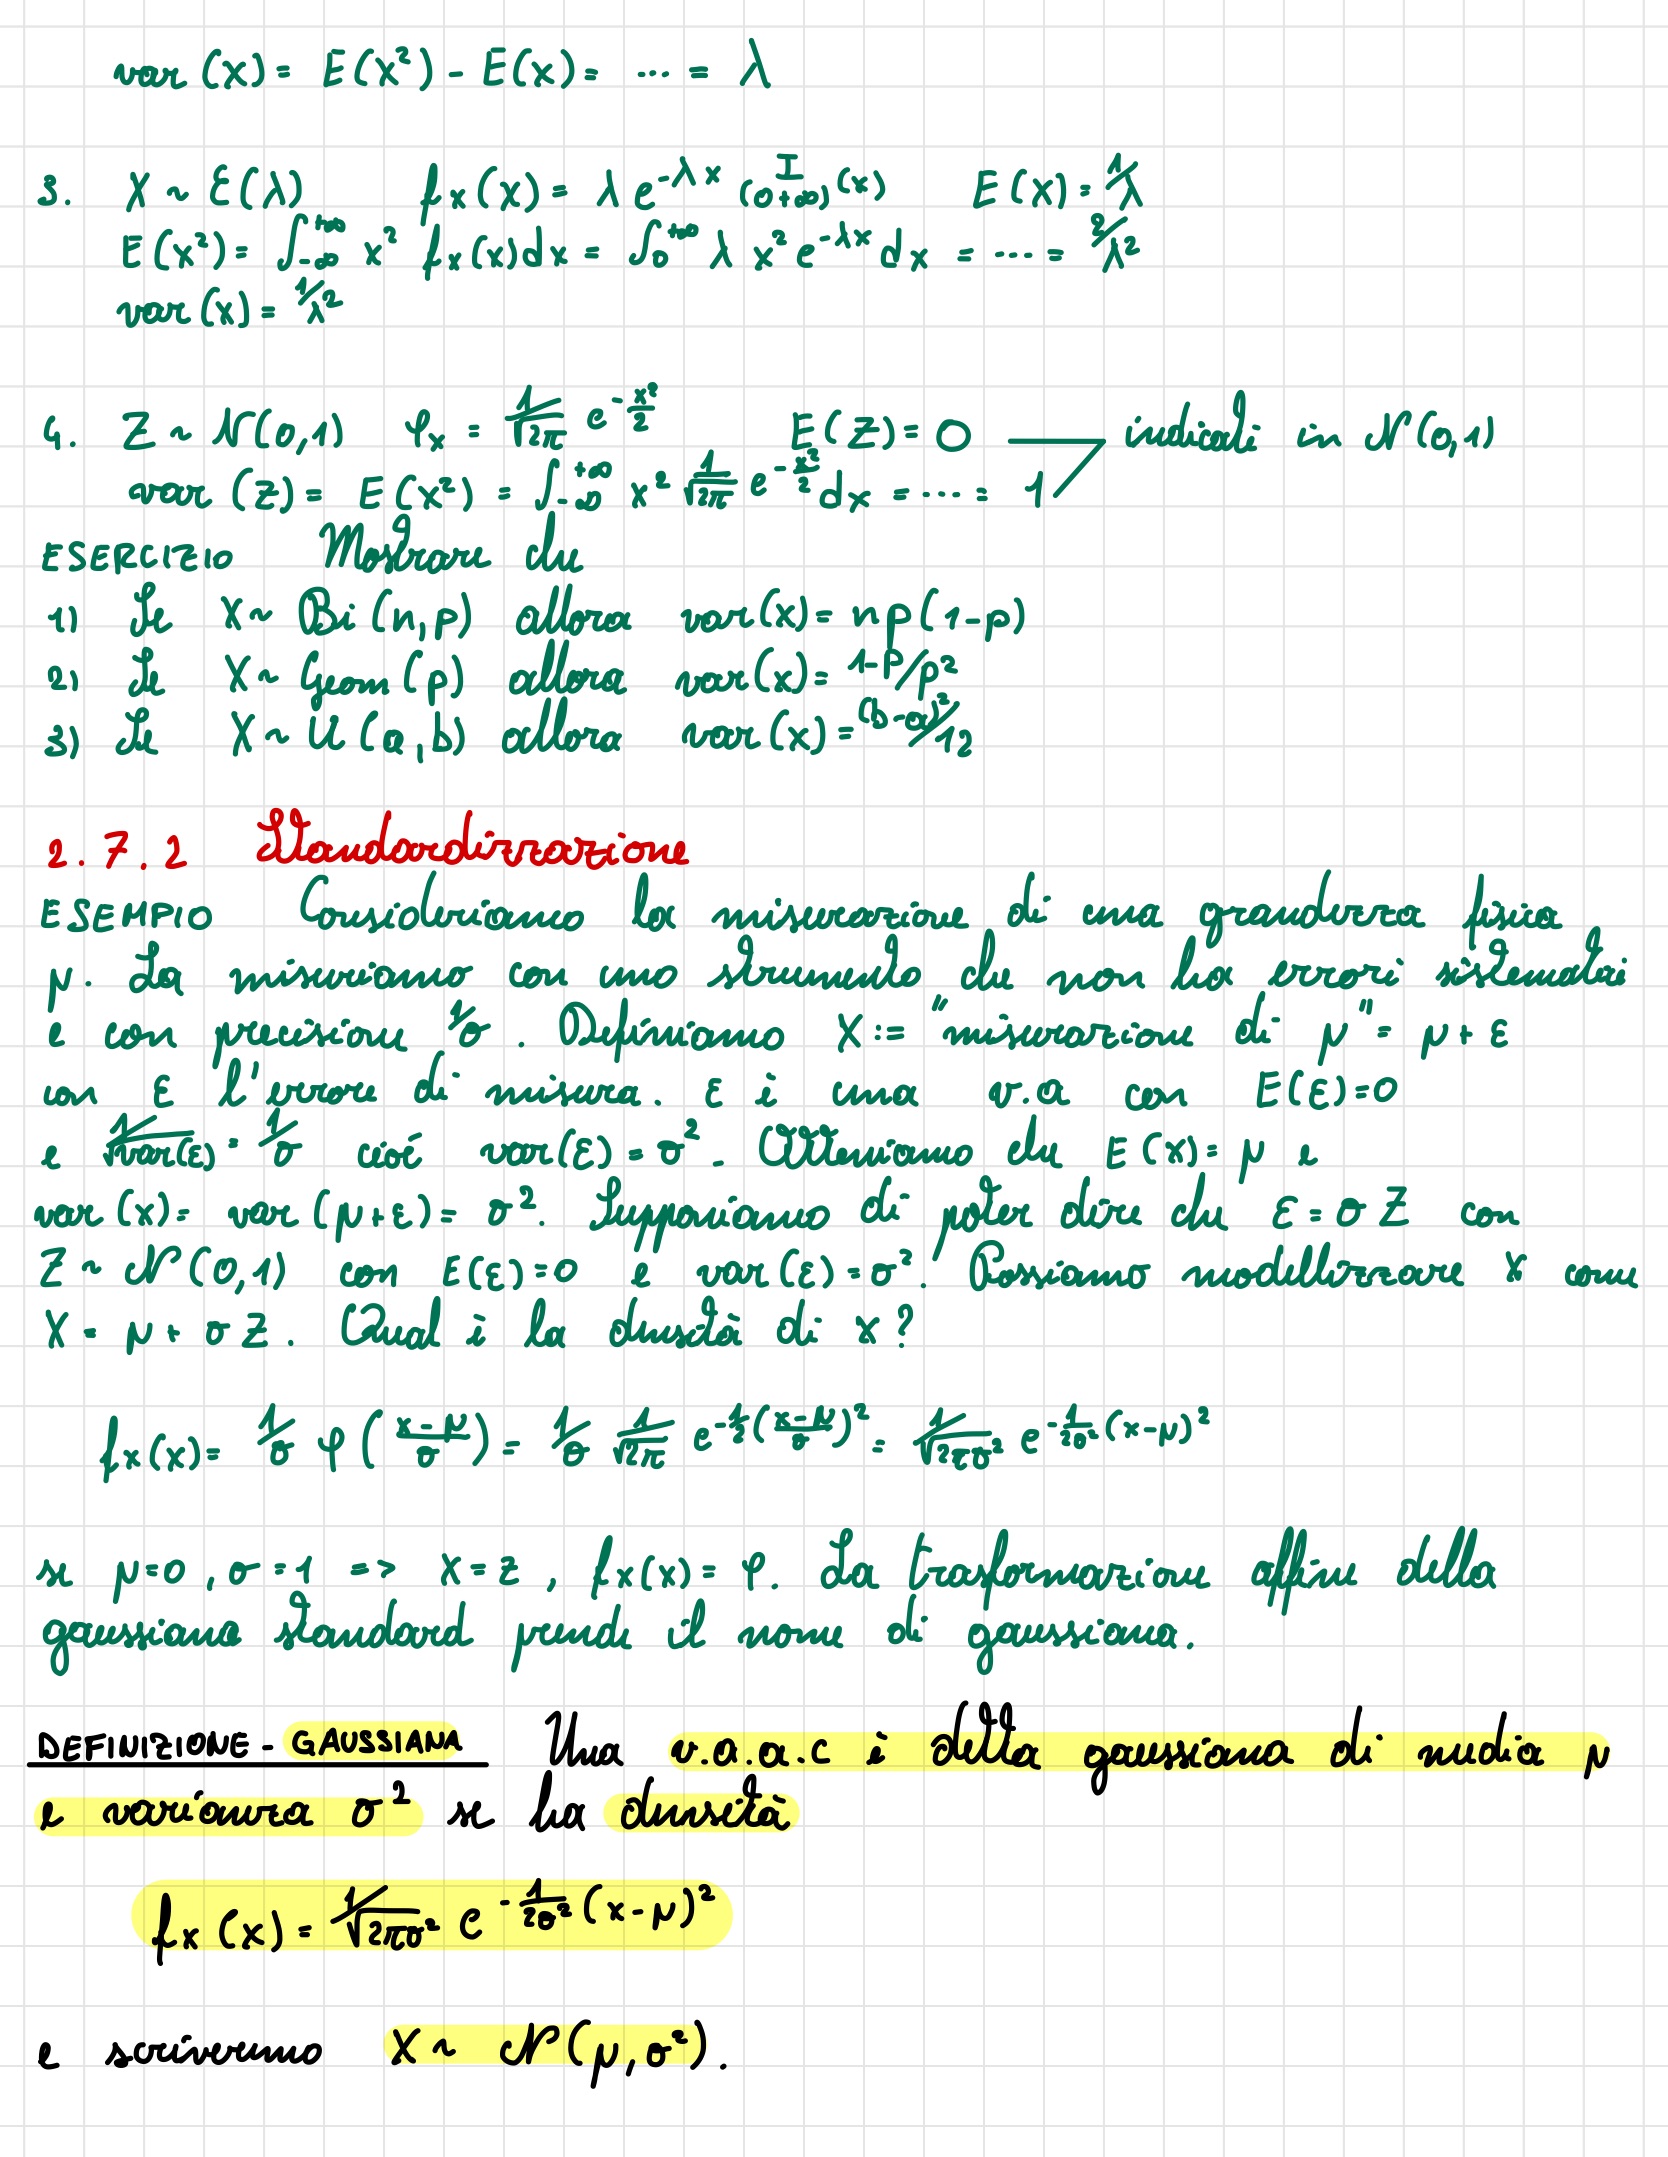 var (X) = E(X²) - E(X) = ... = λ
3. X ~ Ɛ(λ) fx(x) = λ e^{-λx} I_{(0,+∞)}(x) E(X) = 1/λ
E(X²) = ∫_{-∞}^{+∞} x² fx(x)dx = ∫_0^{+∞} λ x² e^{-λx} dx = .... = 2/λ²
var (X) = 1/λ²
4. Z ~ N(0,1) φx = 1/√2π e^{-x²/2} E(Z) = 0 indicati in N(0,1)
var (Z) = E(X²) = ∫_{-∞}^{+∞} x² 1/√2π e^{-x²/2} dx = .... = 1
ESERCIZIO Mostrare che
1) Se X ~ Bi(n,p) allora var(x) = np(1-p)
2) Se X ~ Geom(p) allora var(x) = 1-p/p²
3) Se X ~ U(a,b) allora var(x) = (b-a)²/12
2.7.2 Standardizzazione
ESEMPIO Consideriamo la misurazione di una grandezza fisica
μ. La misuriamo con uno strumento che non ha errori sistematici
e con precisione 1/σ. Definiamo X := "misurazione di μ" = μ + ε
con ε l'errore di misura. ε è una v.a con E(ε)=0
e 1/√var(ε) = 1/σ cioé var(ε) = σ². Otteniamo che E(X) = μ e
var (X) = var (μ+ε) = σ². Supponiamo di poter dire che ε = σ Z con
Z ~ N(0,1) con E(ε)=0 e var(ε) = σ². Possiamo modellizzare X come
X = μ + σ Z. Qual è la densità di x?
fx(x) = 1/σ φ((x-μ)/σ) = 1/σ 1/√2π e^{-1/2((x-μ)/σ)²} = 1/√2πσ² e^{-1/2σ²(x-μ)²}
se μ=0, σ=1 => X=Z, fx(x) = φ. La trasformazione affine della
gaussiana standard prende il nome di gaussiana.
DEFINIZIONE - GAUSSIANA Una v.a.a.c è detta gaussiana di media μ
e varianza σ² se ha densità
fx(x) = 1/√2πσ² e^{-1/2σ²(x-μ)²}
e scriveremo X ~ N(μ,σ²).